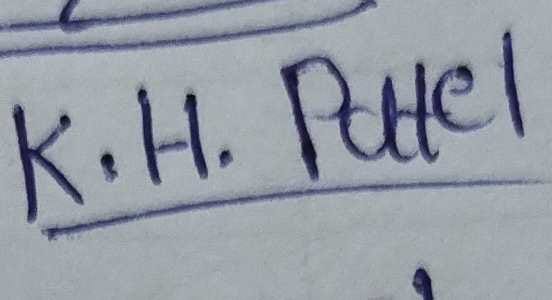 K.H. Pattel